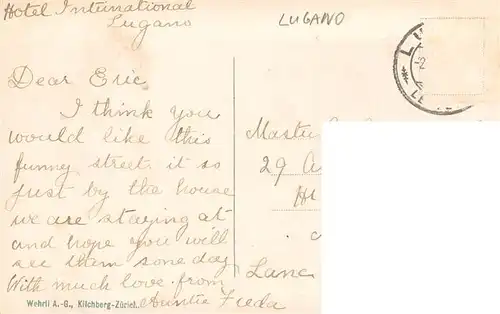 Hotel International
Lugano
LUGANO
Dear Eric
I think you
would like this
funney street it so
just by the house
we are staying at
and hope you will
see them some day
With much love from
Auntie Freda
Wehrli A.-G., Kilchberg-Zürich.
Master
29
Lanc